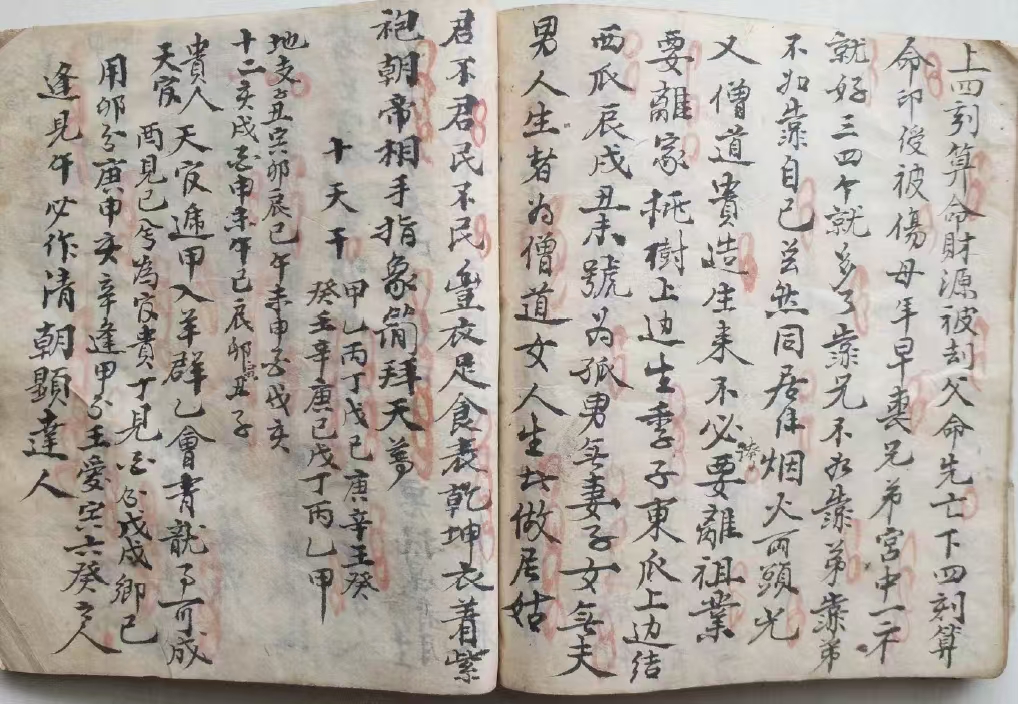 上四刻算命財源被刧父命先亡下四刻算
命印绶被傷母年早喪兄弟宫中一
就好三四个就多了靠兄不如靠弟靠弟
不如靠自己茍然同居住烟火两頭光
又僧道貴造生来不必要離祖業
要離家桃樹上边生季子東瓜上边结
西瓜辰戌丑未號為孤男無妻子女無夫
男人生者為僧道女人生此做居姑
君不君民不民豊衣足食表乾坤衣着紫
袍朝帝相手指象简拜天
十天干
甲乙丙丁戊己庚辛壬癸
癸壬辛庚己戊丁丙乙甲
地支子丑寅卯辰巳午未申子戌亥
十二亥戌酉申未午巳辰卯寅丑子
貴人天官逓甲入羊群乙會青龍事可成
天官
酉見巳為官貴丁見酉分戊戌卿已
用卯分庚申亥辛逢甲分壬爱寅六癸之人
逢見午必作清朝顯達人